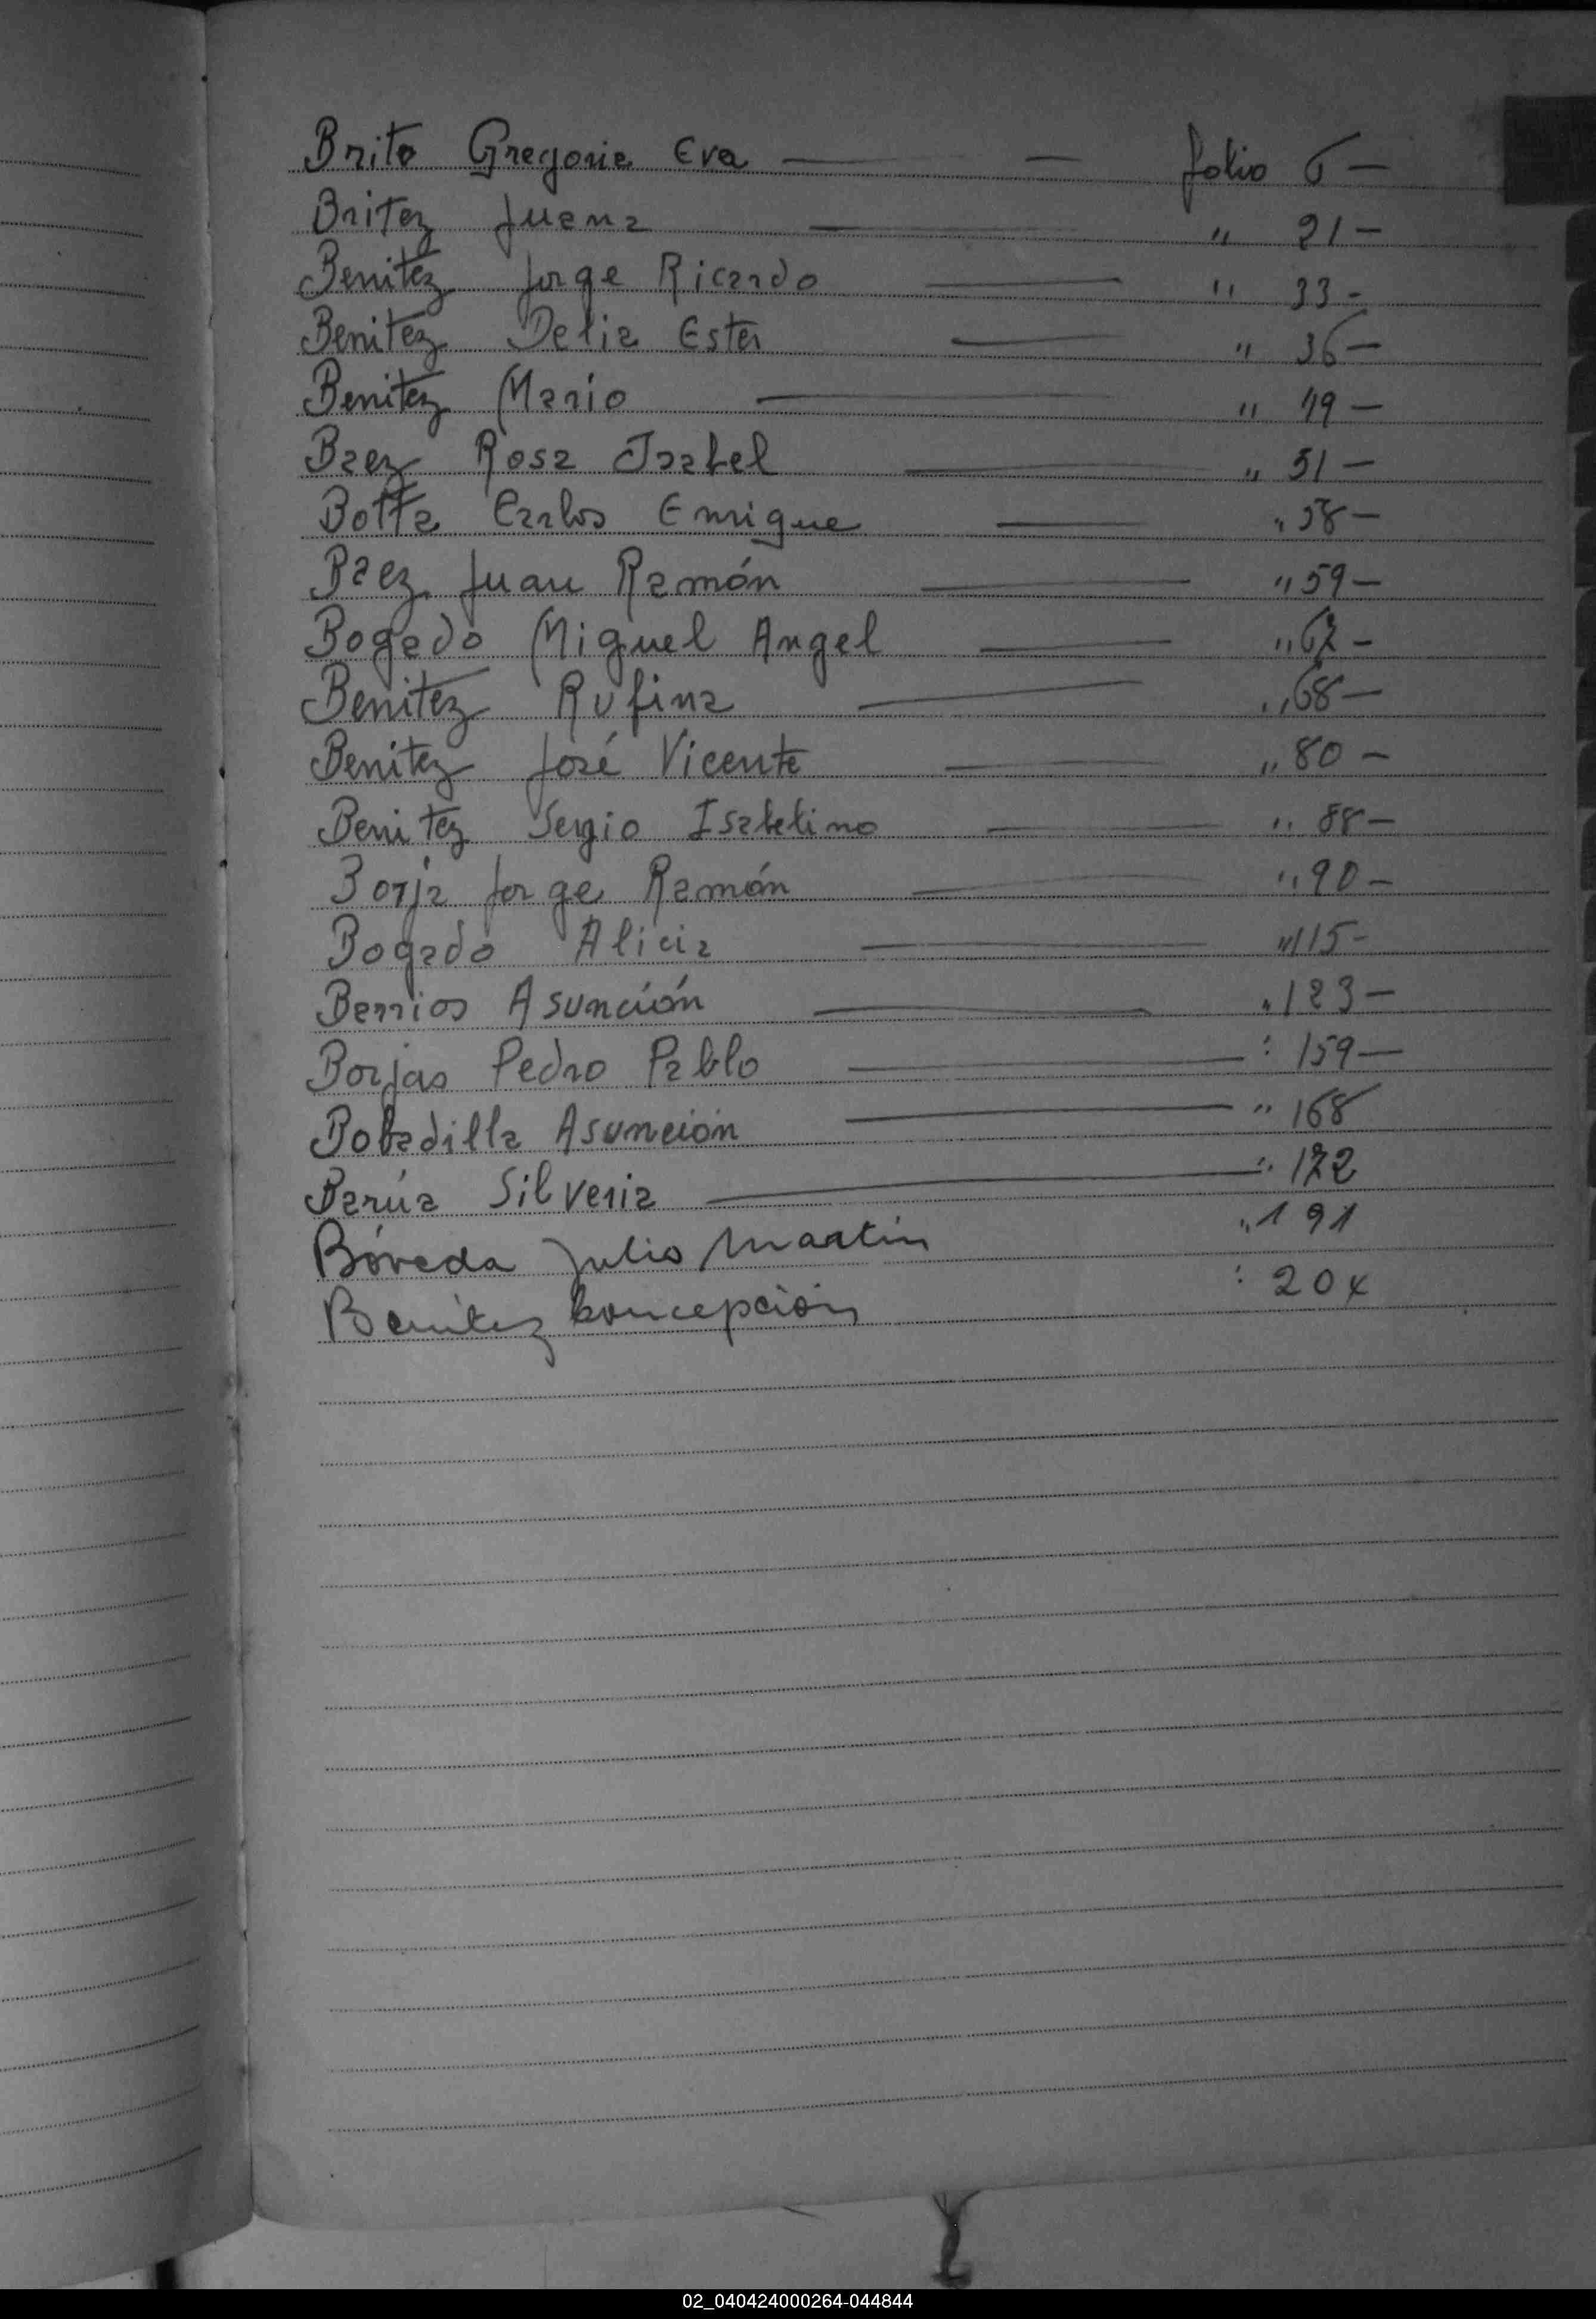 Brito Gregoria Eva — — folio 6 —
Britez Juana — " 21 —
Benitez Jorge Ricardo — " 33 -
Benitez Delia Ester — " 36 —
Benitez Mario — " 49 —
Baez Rosa Isabel — " 51 —
Botta Carlos Enrique — " 58 —
Baez Juan Ramón — " 59 —
Bogado Miguel Angel — " 62 —
Benitez Rufina — " 68 —
Benitez José Vicente — " 80 —
Benitez Sergio Isabelino — " 88 —
Borja Jorge Ramón — " 90 —
Bogado Alicia — " 115 -
Berrios Asunción — " 123 —
Borjas Pedro Pablo — : 159 —
Bobadilla Asunción — " 168
Barúa Silveria — " 172
Bóveda Julio Martin " 191
Benítez Concepción : 204
02_040424000264-044844